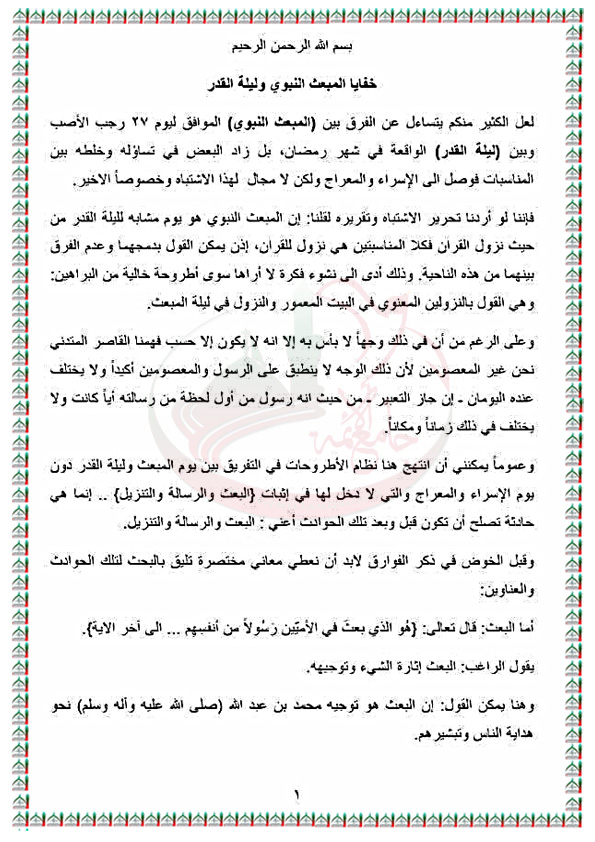 بسم الله الرحمن الرحيم
خفايا المبعث النبوي وليلة القدر
لعل الكثير منكم يتساءل عن الفرق بين (المبعث النبوي) الموافق ليوم ٢٧ رجب الأصب
وبين (ليلة القدر) الواقعة في شهر رمضان، بل زاد البعض في تساؤله وخلطه بين
المناسبات فوصل الى الإسراء والمعراج ولكن لا مجال لهذا الاشتباه وخصوصاً الاخير.
فإننا لو أردنا تحرير الاشتباه وتقريره لقلنا: إن المبعث النبوي هو يوم مشابه لليلة القدر من
حيث نزول القرآن فكلا المناسبتين هي نزول للقرآن، إذن يمكن القول بدمجهما وعدم الفرق
بينهما من هذه الناحية. وذلك أدى الى نشوء فكرة لا أراها سوى أطروحة خالية من البراهين:
وهي القول بالنزولين المعنوي في البيت المعمور والنزول في ليلة المبعث.
وعلى الرغم من أن في ذلك وجهاً لا بأس به إلا انه لا يكون إلا حسب فهمنا القاصر المتدني
نحن غير المعصومين لأن ذلك الوجه لا ينطبق على الرسول والمعصومين أكيداً ولا يختلف
عنده اليومان ـ إن جاز التعبير ـ من حيث انه رسول من أول لحظة من رسالته أياً كانت ولا
يختلف في ذلك زماناً ومكاناً.
وعموماً يمكنني أن انتهج هنا نظام الأطروحات في التفريق بين يوم المبعث وليلة القدر دون
يوم الإسراء والمعراج والتي لا دخل لها في إثبات {البعث والرسالة والتنزيل} .. إنما هي
حادثة تصلح أن تكون قبل وبعد تلك الحوادث أعني : البعث والرسالة والتنزيل.
وقبل الخوض في ذكر الفوارق لابد أن نعطي معاني مختصرة تليق بالبحث لتلك الحوادث
والعناوين:
أما البعث: قال تعالى: {هُو الذي بعثَ في الأمّيّين رَسُولاً من أنفسِهِم ... الى آخر الاية}.
يقول الراغب: البعث إثارة الشيء وتوجيهه.
وهنا يمكن القول: إن البعث هو توجيه محمد بن عبد الله (صلى الله عليه وآله وسلم) نحو
هداية الناس وتبشيرهم.
١